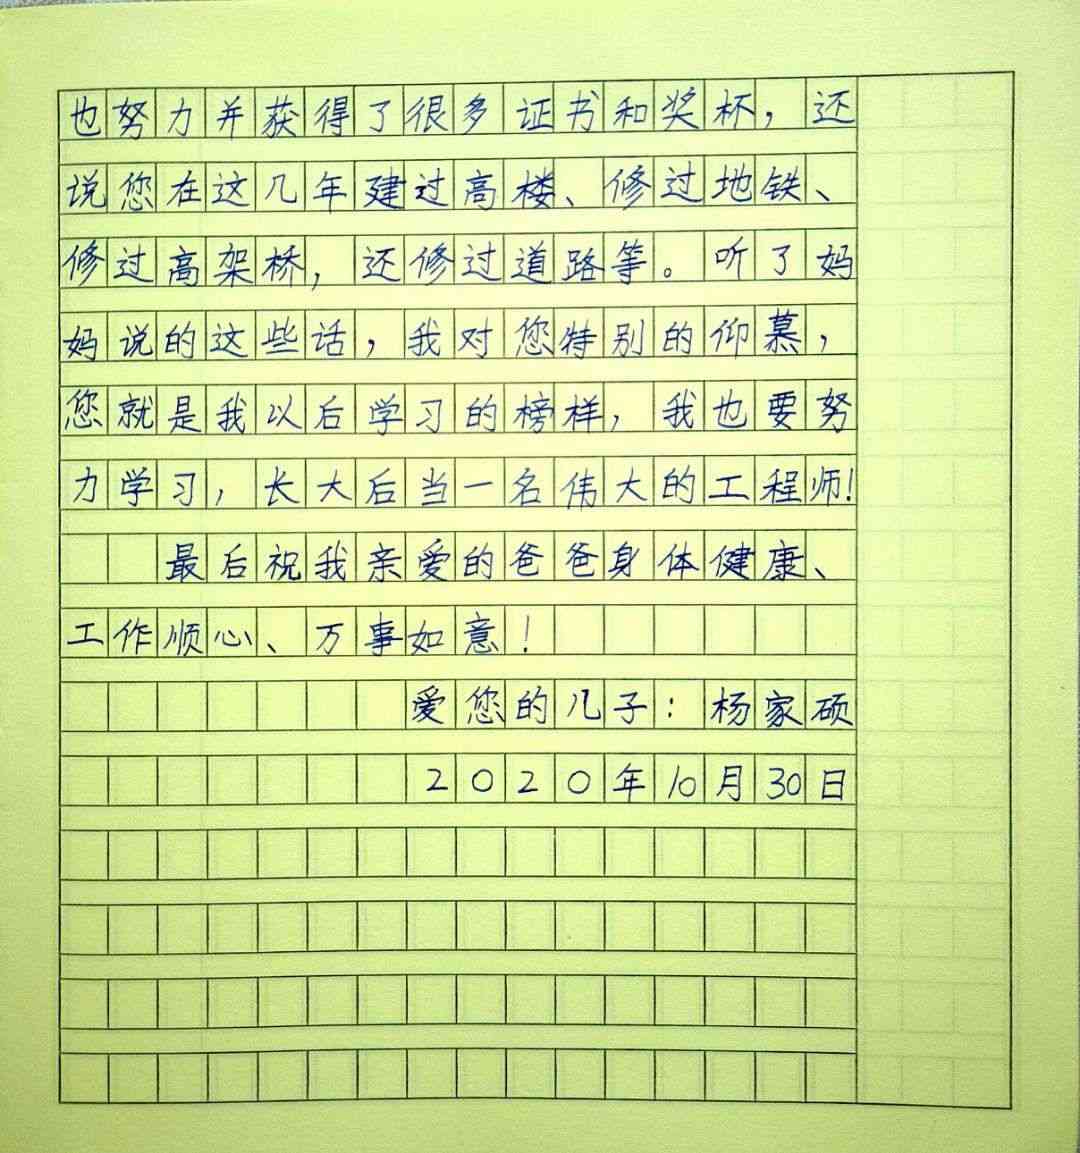 也努力并获得了很多证书和奖杯，还
说您在这几年建过高楼、修过地铁、
修过高架桥，还修过道路等。听了妈
妈说的这些话，我对您特别的仰慕，
您就是我以后学习的榜样，我也要努
力学习，长大后当一名伟大的工程师！
最后祝我亲爱的爸爸身体健康、
工作顺心、万事如意！
爱您的儿子：杨家硕
2020年10月30日